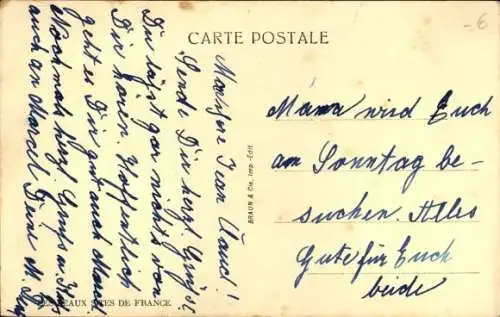 CARTE POSTALE
6
Monsieur Jean Claud!
Sende Dir herzl. Grüsse.
Du läst gar nichts von
Dir hören. Hoffentlich
geht es Dir gut auch
Nochmals herzl. Gruss u.
auch an Marcel Deine M.
BRAUN & Cie, Imp.-Édit.
Mama wird Euch
am Sonntag be-
suchen. Alles
Gute für Euch
beide
LES BEAUX SITES DE FRANCE